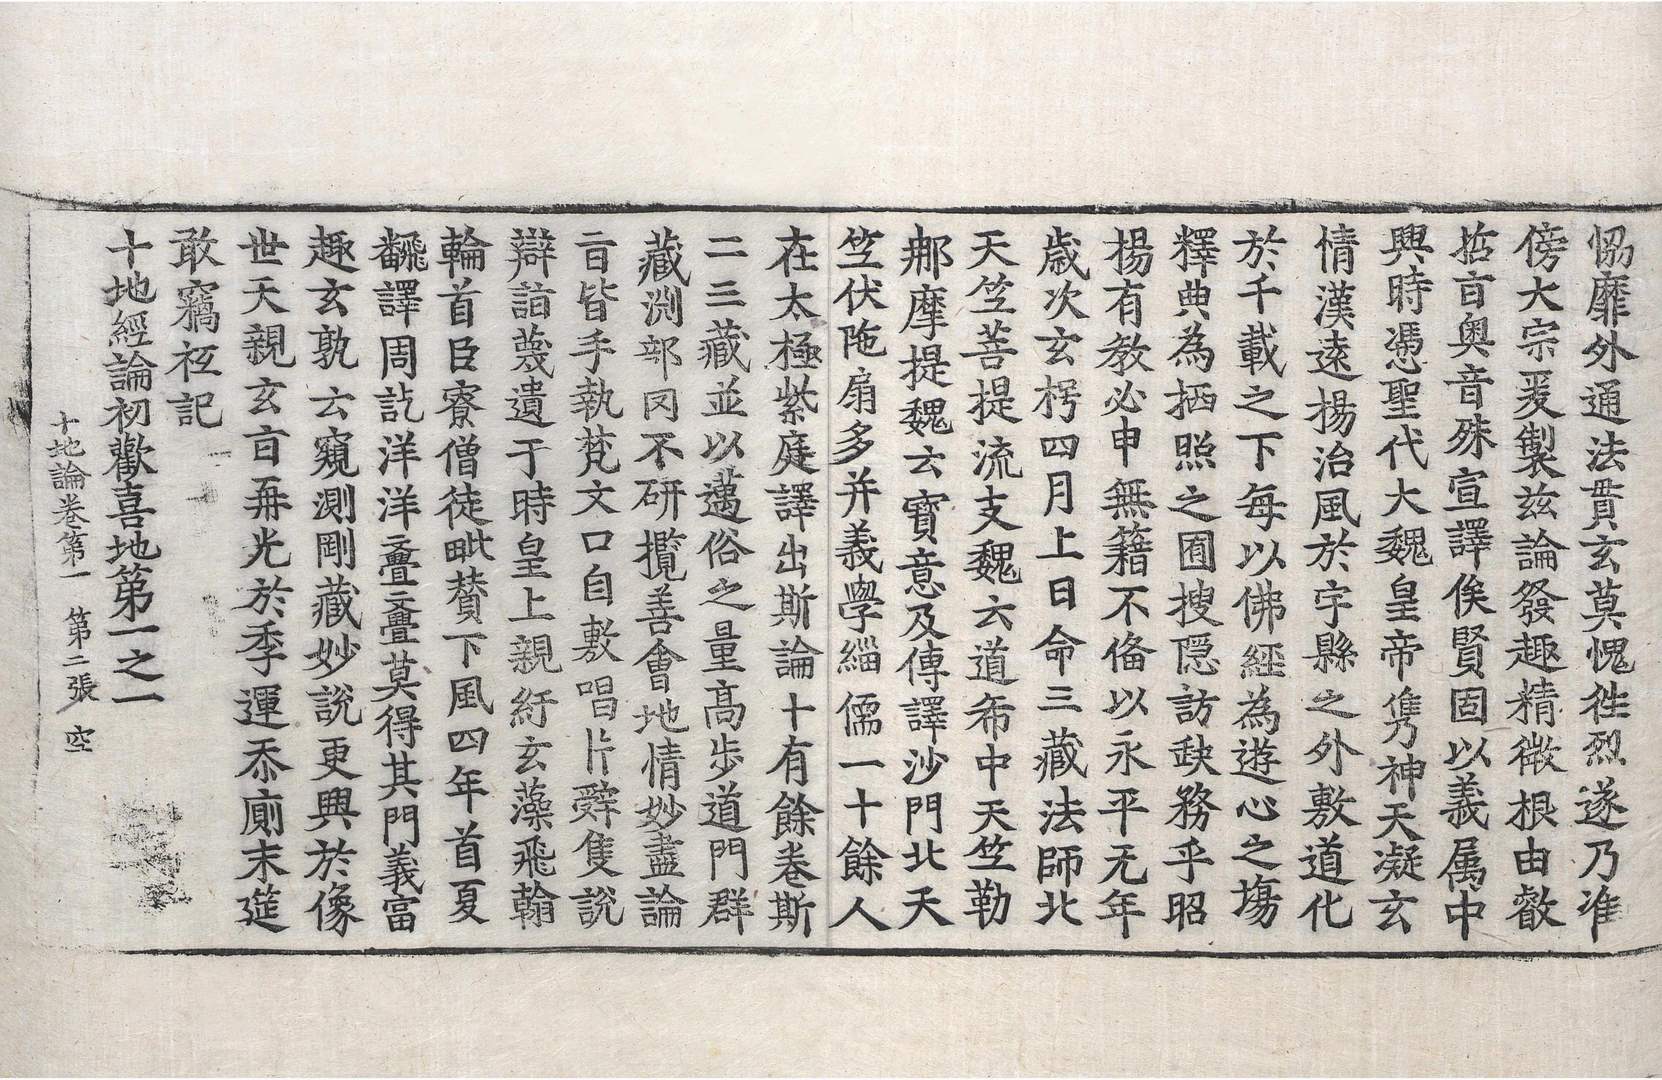 恊靡外通法貫玄莫愧徃烈遂乃准
傍大宗爰製兹論發趣精微根由叡
哲㫖奥音殊宣譯俟賢固以義属中
興時憑聖代大魏皇帝儁神天凝玄
情漢遠揚治風於宇縣之外敷道化
於千載之下每以佛經為遊心之塲
釋典為栖照之囿搜隠訪缺務乎昭
揚有教必申無籍不俻以永平元年
歳次玄枵四月上日命三藏法師北
天竺菩提流支魏云道希中天竺勒
那摩提魏云寶意及傳譯沙門北天
竺伏陁扇多并義學緇儒一十餘人
在太極紫庭譯出斯論十有餘卷斯
二三藏並以邁俗之量髙步道門群
藏渊部罔不研攬善會地情妙盡論
㫖皆手執梵文口自敷唱片辤隻說
辯詣蔑遺于時皇上親紆玄藻飛翰
輪首臣寮僧徒毗賛下風四年首夏
飜譯周訖洋洋亹亹莫得其門義富
趣玄孰云窺測剛藏妙說更興於像
世天親玄㫖再光於季運忝廁末筵
敢竊祗記
十地經論初歡喜地第一之一
十地論卷第一　第二張　空